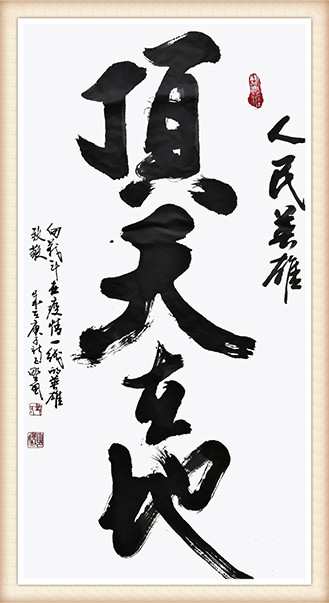 人民英雄
頂天立地
向战斗在疫情一线的英雄
致敬
庚子